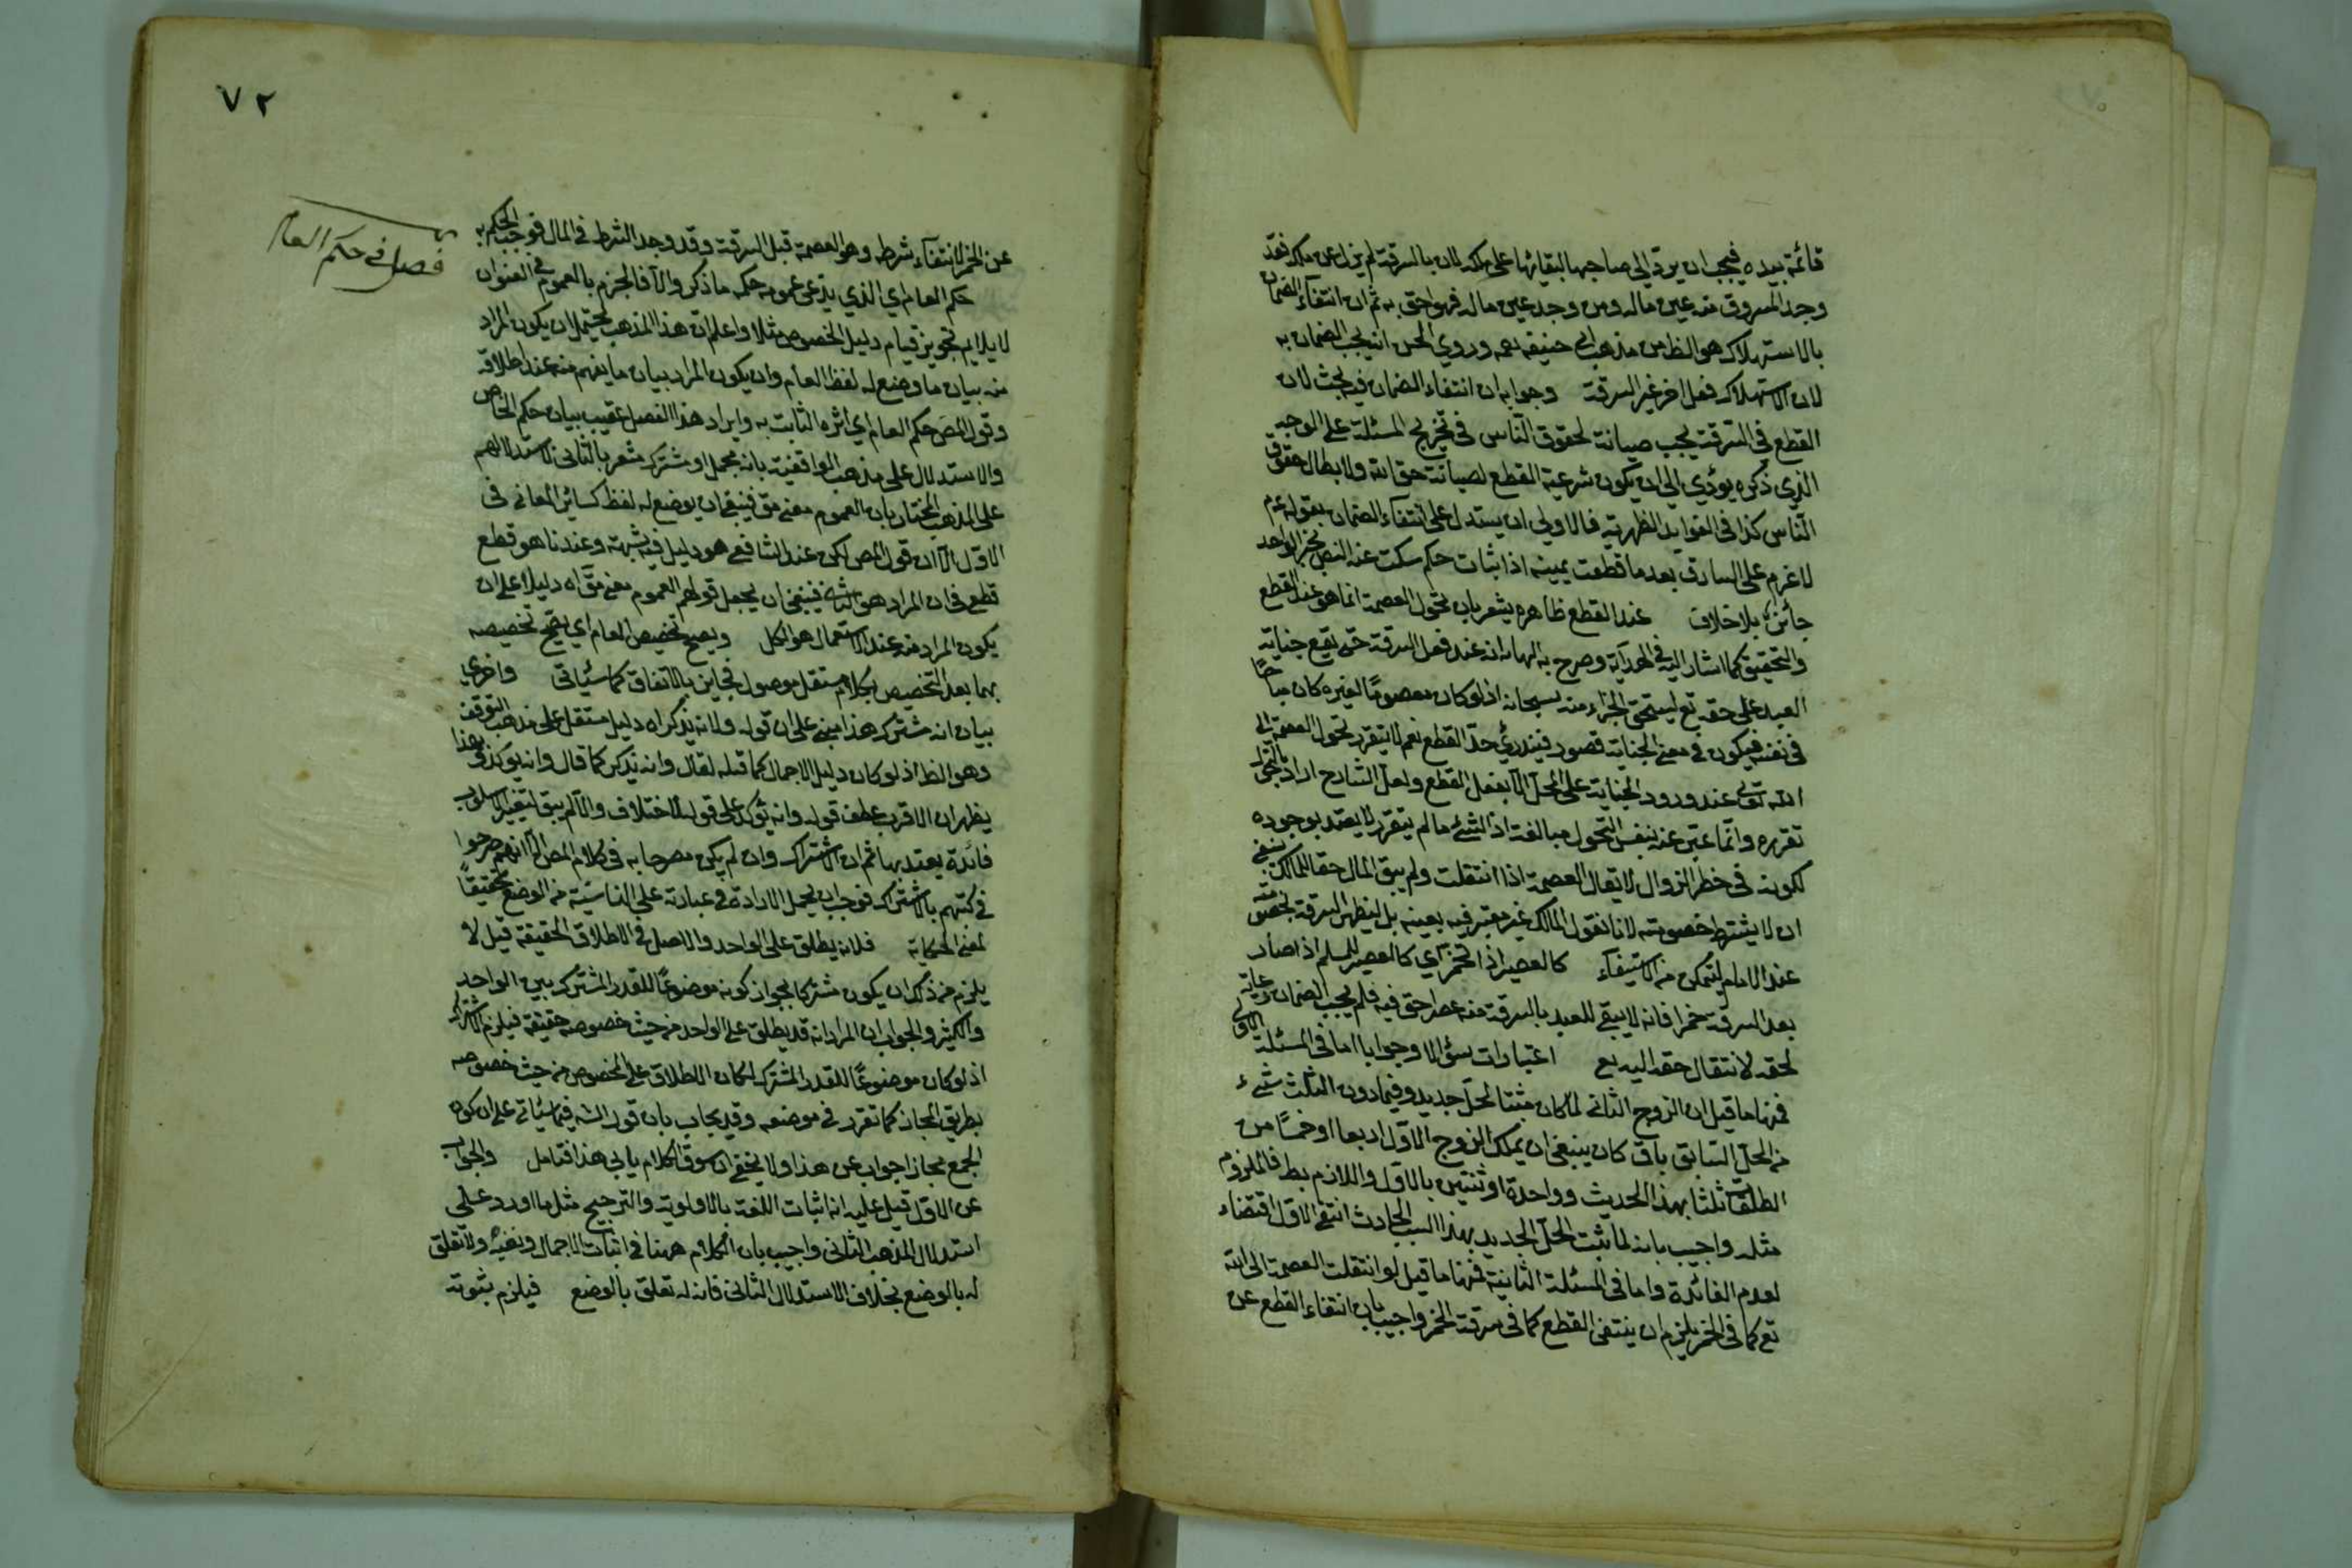 قائمة بيده فيجب ان يرد الى صاحبها لبقائها على ملكه لان بالسرقة لم يزل عن ملكه فقد
وجد المسروق منه عين ماله ومن وجد عين ماله فهو احق به ثم ان انتفاء الضمان
بالاستهلاك هو الظ من مذهب ابى حنيفه رحمه وروي الحسن انه يجب الضمان به
لان الاستهلاك فعل اخر غير السرقة وجوابه ان انتفاء الضمان فيه بحث لان
القطع في السرقة يجب صيانة لحقوق الناس فى تخريج المسئلة على الوجه
الذي ذكره يؤدي الى ان يكون شرعية القطع لصيانة حق الله ولابطال حقوق
الناس كذا فى الفوايد الظهرية فالاولى ان يستدل على انتفاء الضمان بقوله عم
لا غرم على السارق بعد ما قطعت يمينه اذ اثبات حكم سكت عنه النص بخبر الواحد
جائز بلا خلاف عند القطع ظاهره يشعر بان تحول العصمة انما هو عند القطع
والتحقيق كما اشار اليه فى الهداية وصرح به انه عند فعل السرقة حتى يقع جناية
العبد على حقه تع ليستحق الجزاء منه سبحانه اذ لو كان معصوما لغيره كان مباحًا
فى نفسه فيكون فى معنى الجناية قصور فيندرئ حد القطع نعم لا يتقرر تحول العصمة الى
الله تعالى عند ورود الجناية على المحل الا بفعل القطع ولعل الشارح اراد بالتحول
تقرره وانما عبر عنه بنفس التحول مبالغة اذ الشئ ما لم يتقرر لا يعتد بوجوده
لكونه فى خطر الزوال لا يقال العصمة اذا انتقلت ولم يبق المال حقا للمالك ينبغى
ان لا يشترط خصومته لانا نقول المالك غير معتبر فيه بعينه بل ليظهر السرقة بخصومته
عند الامام ليتمكن من الاستيفاء كالعصير اذا تخمر اي كالعصير للمسلم اذا صار
بعد السرقة خمرا فانه لا يبقى للعبد بالسرقة منه عصرا حق فيه فلم يجب الضمان رعاية
لحقه لانتقال حقه اليه تع اعتبارات سؤالا وجوابا اما فى المسئلة الاولى
فمنها ما قيل ان الزوج الثانى لما كان مثبتا لحل جديد وفيما دون الثلث شئ
من الحل السابق باق كان ينبغى ان يملك الزوج الاول اربعا او خمسًا من
الطلقات ثلثا بهذا الحديث وواحدة او ثنتين بالاول واللازم بط فالملزوم
مثله واجيب بانه لما ثبت الحل الجديد بهذا السبب الحادث انتفى الاول اقتضاء
لعدم الفائدة واما فى المسئلة الثانية فمنها ما قيل لو انتقلت العصمة الى الله
تع كما فى الخمر يلزم ان ينتفى القطع كما فى سرقة الخمر واجيب بان انتفاء القطع عن
٧٢
فصل فى حكم العام
عن الخمر لانتفاء شرطه وهو العصمة قبل السرقة وقد وجد الشرط فى المال فوجب الحكم به
حكم العام اي الذي يدعى عمومه حكمه ما ذكر والا فالجزم بالعموم فى العنوان
لا يلايم تجويز قيام دليل الخصوص مثلا واعلم ان هذا المذهب يحتمل ان يكون المراد
منه بيان ما وضع له لفظ العام وان يكون المراد بيان ما يفهم منه عند اطلاقه
وقول المص حكم العام اي اثره الثابت به وايراد هذا الفصل عقيب بيان حكم الخاص
والاستدلال على مذهب الواقفية بانه مجمل او مشترك مشعر بالثانى كاستدلالهم
على المذهب المختار بان العموم معنى مق فينبغى ان يوضع له لفظ كساير المعانى فى
الاول الا ان قول المص لكن عند الشافعى هو دليل فيه شبهة وعندنا هو قطع
قطعى فى ان المراد هو الثانى فينبغى ان يجعل قولهم العموم معنى مق اه دليلا على ان
يكون المراد منه عند الاستعمال هو الكل ويصح تخصيص العام اي يصح تخصيصه
بهما بعد التخصيص بكلام مستقل موصول فجايز بالاتفاق كما سيأتى واخرى
بيان انه مشترك هذا مبنى على ان قوله ولانه يذكر اه دليل مستقل على مذهب التوقف
وهو الظ اذ لو كان دليل الاجمال كما قبله لقال وانه يذكر كما قال وانه يوكد وبهذا
يظهر ان الاقرب عطف قوله وانه يؤكد على قوله لاختلاف والا لم يبق لتغيير الاسلوب
فائدة يعتد بها ثم ان الاشتراك وان لم يكن مصرحا به فى كلام المص الا انهم صرحوا
فى كتبهم بالاشتراك فوجب ان يحمل الارادة فى عبارته على الناشئة من الوضع تحقيقًا
لمعنى الحكاية فلانه يطلق على الواحد والاصل فى الاطلاق الحقيقة قيل لا
يلزم من ذلك ان يكون مشتركا لجواز كونه موضوعًا للقدر المشترك بين الواحد
والكثير والجواب ان المراد انه قد يطلق على الواحد من حيث خصوصه حقيقة فيلزم الاشتراك
اذ لو كان موضوعًا للقدر المشترك لكان الاطلاق على المخصوص من حيث خصوصه
بطريق المجاز كما تقرر فى موضعه وقد يجاب بان قول الشه فيما سيأتى على ان كون
الجمع مجازا جواب عن هذا ولا يخفى ان سوق الكلام يابى هذا فتامل والجواب
عن الاول قيل عليه انه اثبات اللغة بالاولوية والترجيح مثل ما اورد على
استدلال المذهب الثانى واجيب بان الكلام ههنا فى اثبات الاجمال ونفيه ولا تعلق
له بالوضع بخلاف الاستدلال الثانى فانه له تعلق بالوضع فيلزم ثبوته